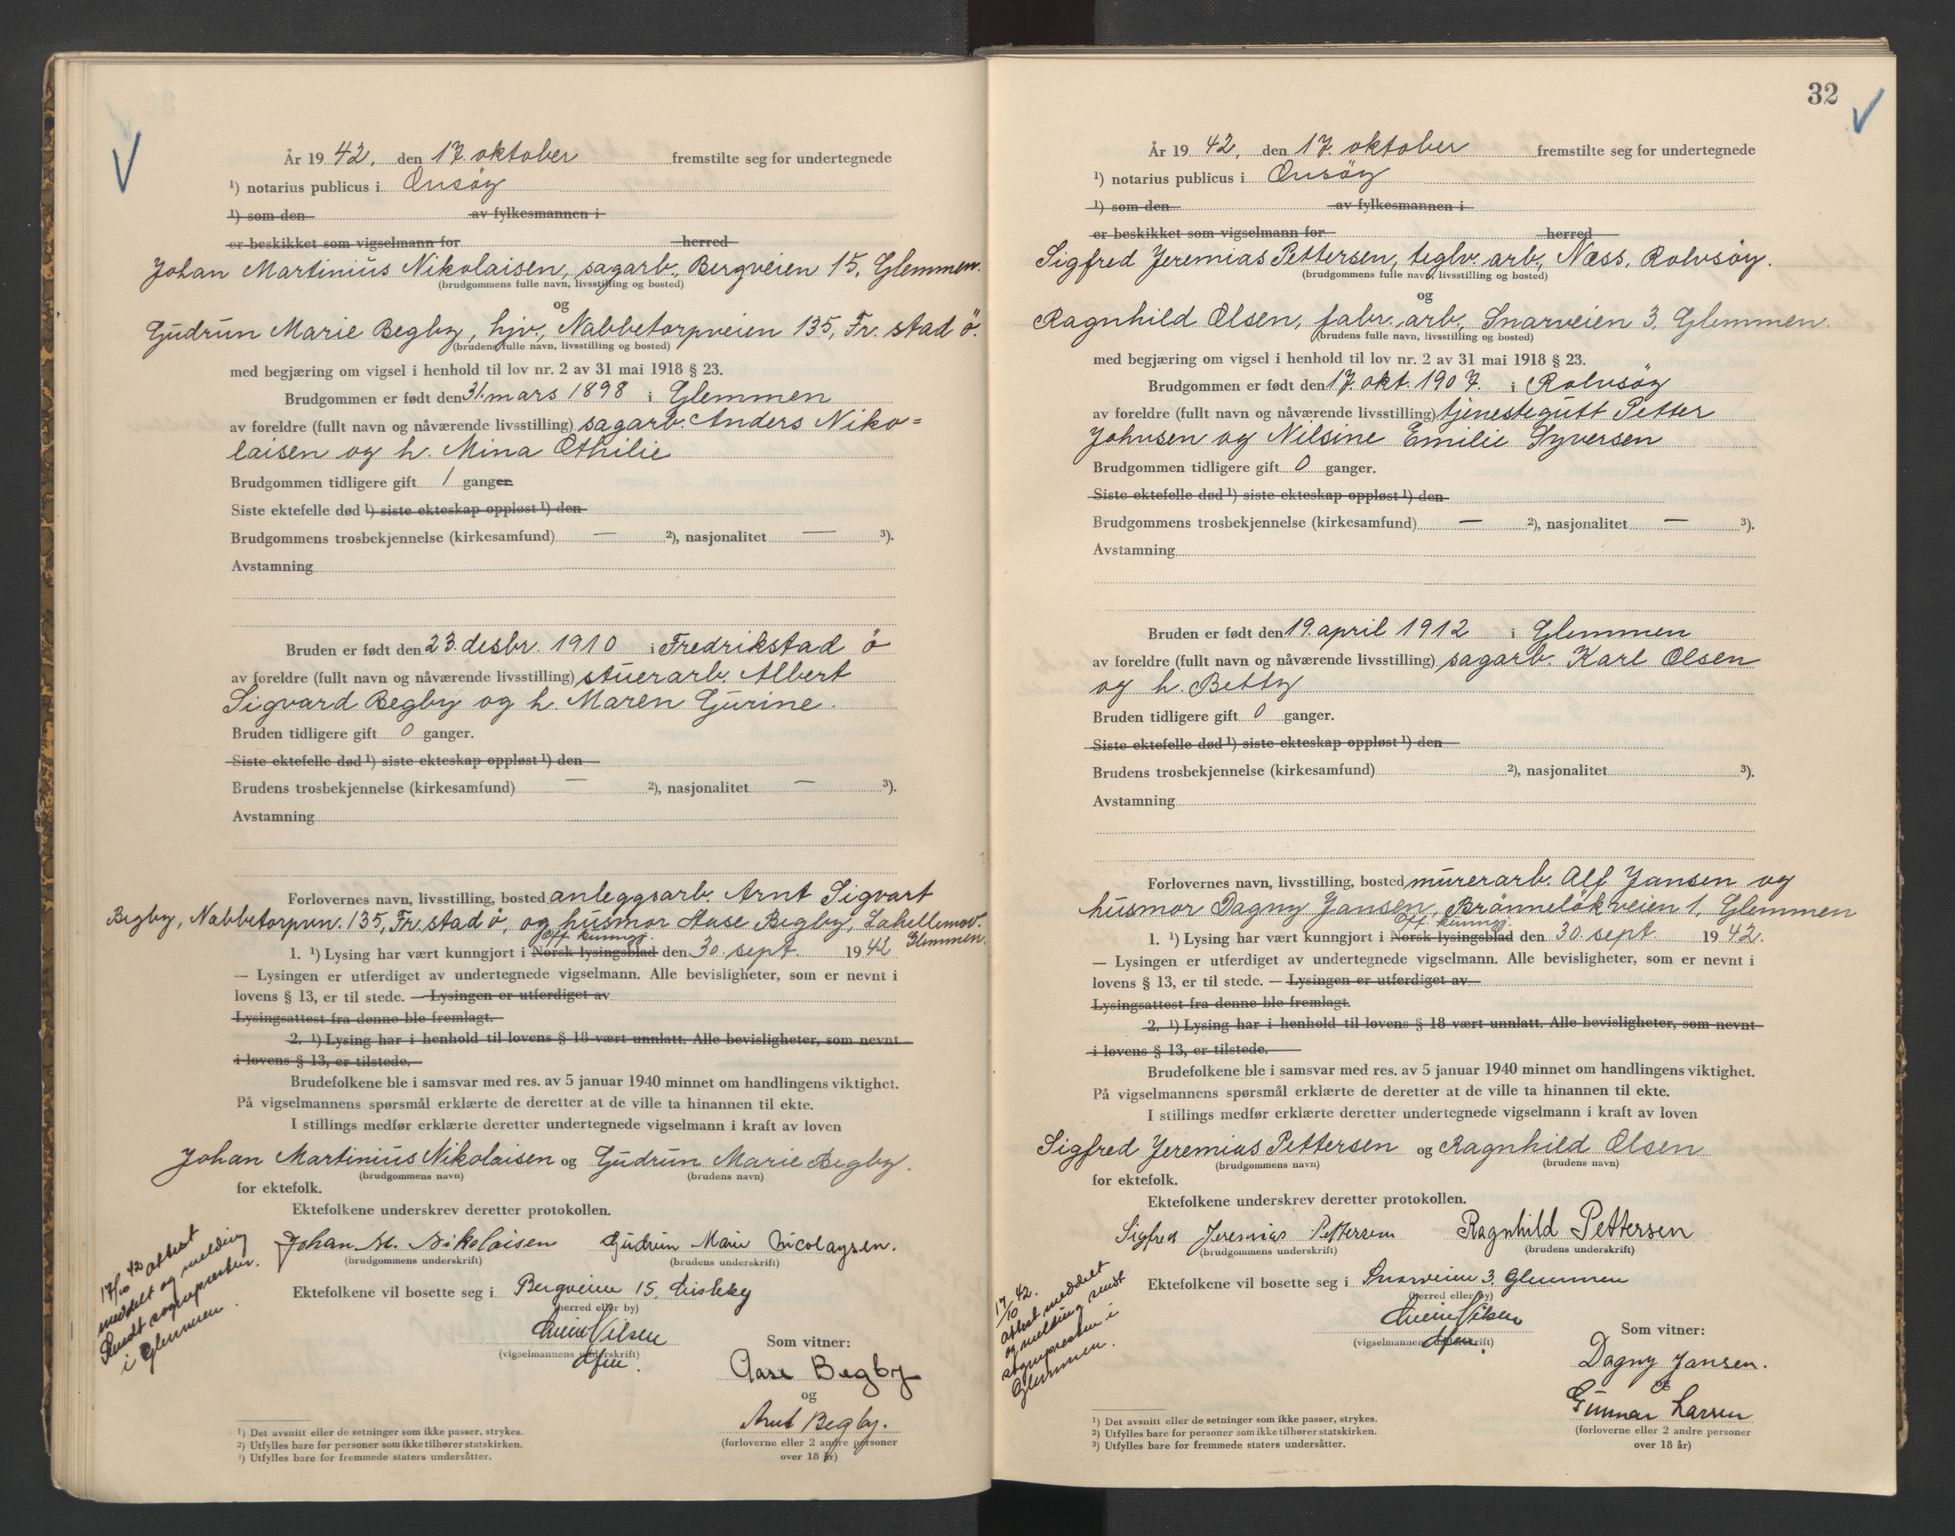 År 1942, den 17. oktober fremstilte seg for undertegnede
¹) notarius publicus i Onsøy
¹) som den av fylkesmannen i
er beskikket som vigselmann for herred
Johan Martinius Nikolaisen, sagarb., Bergveien 15, Glemmen.
(brudgommens fulle navn, livsstilling og bosted)
og
Gudrun Marie Begby, hjv., Nabbetorpveien 135, Fr.stad ö.
(brudens fulle navn, livsstilling og bosted)
med begjæring om vigsel i henhold til lov nr. 2 av 31 mai 1918 § 23.
Brudgommen er født den 31. mars 1898 i Glemmen
av foreldre (fullt navn og nåværende livsstilling) sagarb. Anders Niko=
laisen og h. Mina Othilie
Brudgommen tidligere gift 1 ganger
Siste ektefelle død ¹) siste ekteskap oppløst ¹) den
Brudgommens trosbekjennelse (kirkesamfund) — ²), nasjonalitet — ³).
Avstamning
Bruden er født den 23. desbr. 1910 i Fredrikstad ö
av foreldre (fullt navn og nåværende livsstilling) stuerarb. Albert
Sigvard Begby og h. Maren Gurine.
Bruden tidligere gift 0 ganger.
Siste ektefelle død ¹) siste ekteskap oppløst ¹) den
Brudens trosbekjennelse (kirkesamfund) — ²), nasjonalitet — ³).
Avstamning
Forlovernes navn, livsstilling, bosted anleggsarb. Arnt Sigvart
Begby, Nabbetorpvn. 135, Fr.stad ö, og husmor Aase Begby, Lahellemov.
Glemmen.
off. kunngj.
1. ¹) Lysing har vært kunngjort i Norsk lysingsblad den 30. sept. 1942
— Lysingen er utferdiget av undertegnede vigselmann. Alle bevisligheter, som er nevnt i
lovens § 13, er til stede. — Lysingen er utferdiget av
Lysingsattest fra denne ble fremlagt.
2. ¹) Lysing har i henhold til lovens § 18 vært unnlatt. Alle bevisligheter, som nevnt
i lovens § 13, er tilstede.
Brudefolkene ble i samsvar med res. av 5 januar 1940 minnet om handlingens viktighet.
På vigselmannens spørsmål erklærte de deretter at de ville ta hinannen til ekte.
I stillings medfør erklærte deretter undertegnede vigselmann i kraft av loven
Johan Martinius Nikolaisen og Gudrun Marie Begby.
(brudgommens navn) (brudens navn)
for ektefolk.
Ektefolkene underskrev deretter protokollen.
Johan M. Nikolaisen Gudrun Marie Nicolaysen.
(brudgommens underskrift) (brudens underskrift)
Ektefolkene vil bosette seg i Bergveien 15,
(herred eller by)
Nilsen
(vigselmannens underskrift)
Som vitner:
Aase Begby
og
Arnt Begby.
(forloverne eller 2 andre personer
over 18 år)
17/10 42 attest
meddelt og melding
sendt sognepresten
i Glemmen.
¹) Det avsnitt eller de setninger som ikke passer, strykes.
²) Utfylles bare for personer som ikke tilhører statskirken.
³) Utfylles bare for fremmede staters undersåtter.
32
År 1942, den 17. oktober fremstilte seg for undertegnede
¹) notarius publicus i Onsøy
¹) som den av fylkesmannen i
er beskikket som vigselmann for herred
Sigfred Jeremias Pettersen, teglv. arb., Næss, Rolvsøy.
(brudgommens fulle navn, livsstilling og bosted)
og
Ragnhild Olsen, fabr. arb., Snarveien 3, Glemmen.
(brudens fulle navn, livsstilling og bosted)
med begjæring om vigsel i henhold til lov nr. 2 av 31 mai 1918 § 23.
Brudgommen er født den 17. okt. 1907. i Rolvsøy
av foreldre (fullt navn og nåværende livsstilling) tjenestegutt Petter
Johnsen og Nilsine Emilie Syversen
Brudgommen tidligere gift 0 ganger.
Siste ektefelle død ¹) siste ekteskap oppløst ¹) den
Brudgommens trosbekjennelse (kirkesamfund) — ²), nasjonalitet — ³).
Avstamning
Bruden er født den 19. april 1912 i Glemmen
av foreldre (fullt navn og nåværende livsstilling) sagarb. Karl Olsen
og h. Betty
Bruden tidligere gift 0 ganger.
Siste ektefelle død ¹) siste ekteskap oppløst ¹) den
Brudens trosbekjennelse (kirkesamfund) ²), nasjonalitet ³).
Avstamning
Forlovernes navn, livsstilling, bosted murerarb. Alf Jansen og
husmor Dagny Jansen, Brönneløkveien 1, Glemmen
off. kunngj.
1. ¹) Lysing har vært kunngjort i Norsk lysingsblad den 30. sept. 1942.
— Lysingen er utferdiget av undertegnede vigselmann. Alle bevisligheter, som er nevnt i
lovens § 13, er til stede. — Lysingen er utferdiget av
Lysingsattest fra denne ble fremlagt.
2. ¹) Lysing har i henhold til lovens § 18 vært unnlatt. Alle bevisligheter, som nevnt
i lovens § 13, er tilstede.
Brudefolkene ble i samsvar med res. av 5 januar 1940 minnet om handlingens viktighet.
På vigselmannens spørsmål erklærte de deretter at de ville ta hinannen til ekte.
I stillings medfør erklærte deretter undertegnede vigselmann i kraft av loven
Sigfred Jeremias Pettersen og Ragnhild Olsen
(brudgommens navn) (brudens navn)
for ektefolk.
Ektefolkene underskrev deretter protokollen.
Sigfred Jeremias Pettersen Ragnhild Pettersen
(brudgommens underskrift) (brudens underskrift)
Ektefolkene vil bosette seg i Snarveien 3, Glemmen
(herred eller by)
Nilsen
(vigselmannens underskrift)
Som vitner:
Dagny Jansen.
og
Gunnar Larsen
(forloverne eller 2 andre personer
over 18 år)
17/10 42.
attest meddelt
og melding sendt
sognepresten i
Glemmen.
¹) Det avsnitt eller de setninger som ikke passer, strykes.
²) Utfylles bare for personer som ikke tilhører statskirken.
³) Utfylles bare for fremmede staters undersåtter.